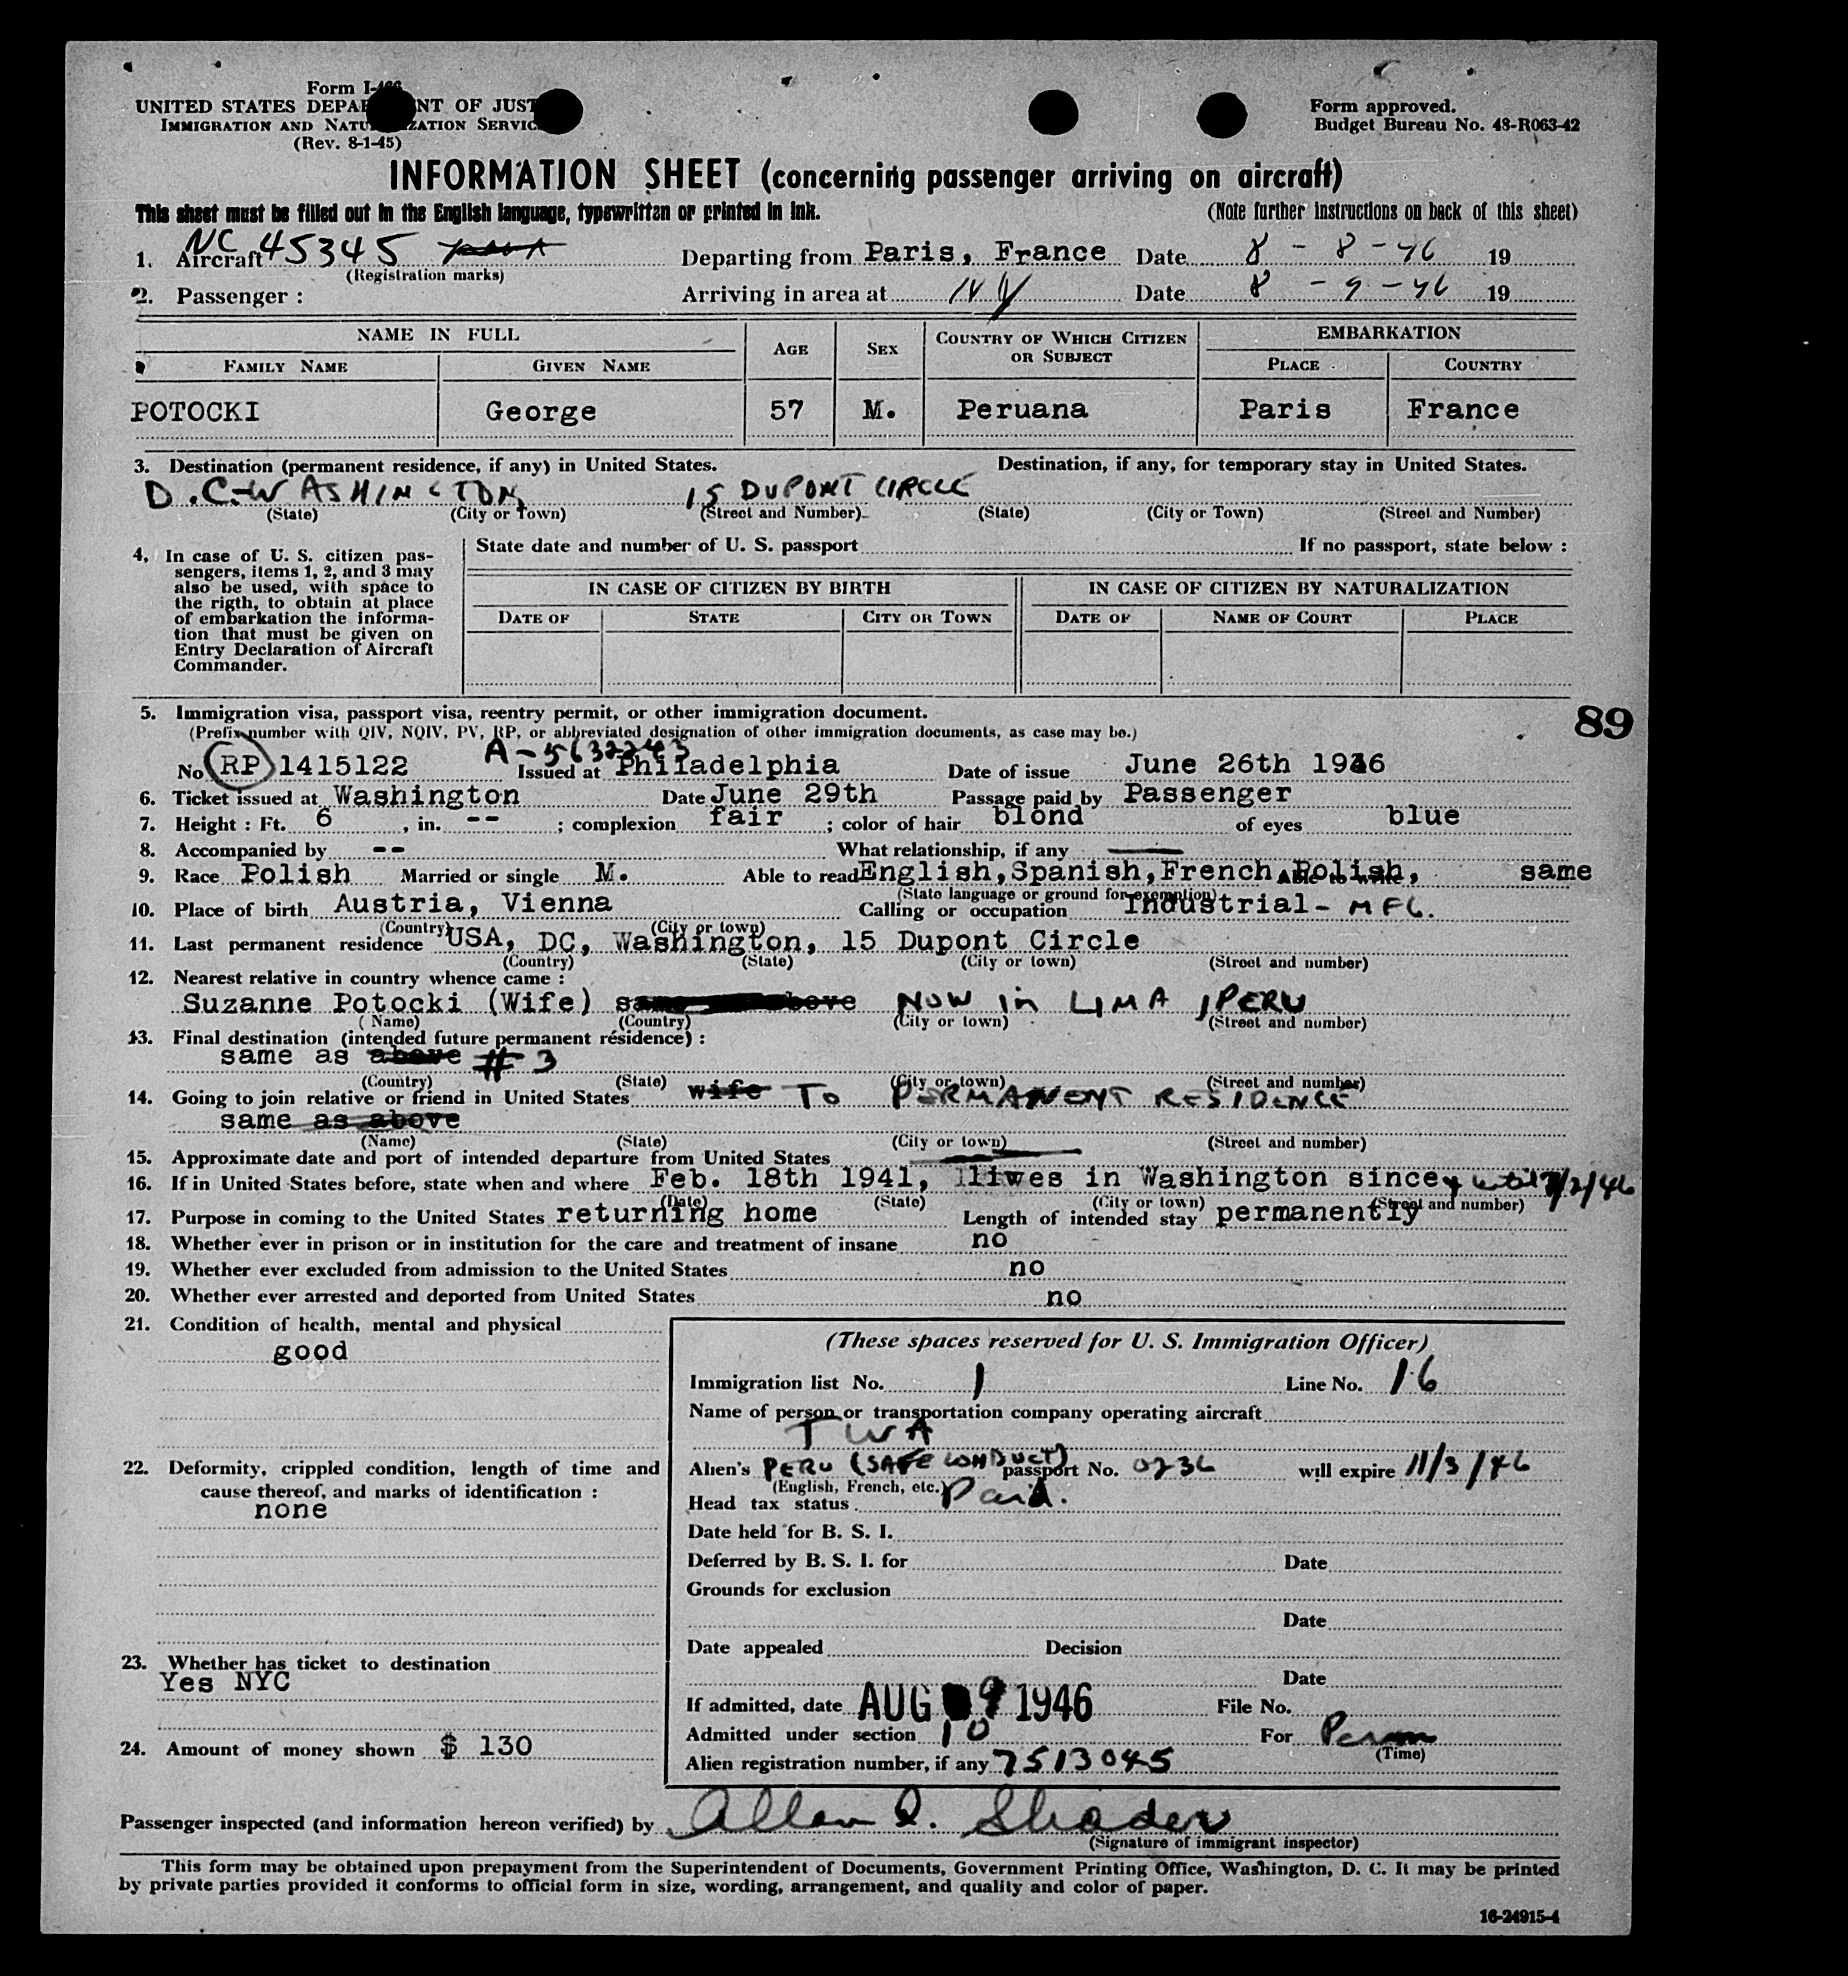 Form I-466
UNITED STATES DEPARTMENT OF JUSTICE
IMMIGRATION AND NATURALIZATION SERVICE
(Rev. 8-1-45)
Form approved.
Budget Bureau No. 43-R063-42
INFORMATION SHEET (concerning passenger arriving on aircraft)
This sheet must be filled out in the English language, typewritten or printed in ink.
(Note further instructions on back of this sheet)
1. Aircraft NC 45345 Departing from Paris, France Date 8-8-46 19
(Registration marks)
2. Passenger : Arriving in area at NY Date 8-9-46 19
NAME IN FULL AGE SEX COUNTRY OF WHICH CITIZEN OR SUBJECT EMBARKATION
FAMILY NAME GIVEN NAME PLACE COUNTRY
POTOCKI George 57 M. Peruana Paris France
3. Destination (permanent residence, if any) in United States. Destination, if any, for temporary stay in United States.
D.C.-WASHINGTON, 15 DUPONT CIRCLE
(State) (City or Town) (Street and Number) (State) (City or Town) (Street and Number)
4. In case of U. S. citizen pas-
sengers, items 1, 2, and 3 may
also be used, with space to
the rigth, to obtain at place
of embarkation the informa-
tion that must be given on
Entry Declaration of Aircraft
Commander.
State date and number of U. S. passport If no passport, state below :
IN CASE OF CITIZEN BY BIRTH IN CASE OF CITIZEN BY NATURALIZATION
DATE OF STATE CITY OR TOWN DATE OF NAME OF COURT PLACE
5. Immigration visa, passport visa, reentry permit, or other immigration document.
89
(Prefix number with QIV, NQIV, PV, RP, or abbreviated designation of other immigration documents, as case may be.)
A-5632243
No RP 1415122 Issued at Philadelphia Date of issue June 26th 1946
6. Ticket issued at Washington Date June 29th Passage paid by Passenger
7. Height : Ft. 6 , in. -- ; complexion fair ; color of hair blond of eyes blue
8. Accompanied by -- What relationship, if any
9. Race Polish Married or single M. Able to read English,Spanish,French,Polish, Able to write same
(State language or ground for exemption)
10. Place of birth Austria, Vienna Calling or occupation Industrial- MFG.
(Country) (City or town)
11. Last permanent residence USA, DC, Washington, 15 Dupont Circle
(Country) (State) (City or town) (Street and number)
12. Nearest relative in country whence came :
Suzanne Potocki (Wife) same as above NOW in LIMA, PERU
(Name) (Country) (City or town) (Street and number)
13. Final destination (intended future permanent résidence) :
same as above #3
(Country) (State) (City or town) (Street and number)
14. Going to join relative or friend in United States wife TO PERMANENT RESIDENCE
same as above
(Name) (State) (City or town) (Street and number)
15. Approximate date and port of intended departure from United States
16. If in United States before, state when and where Feb. 18th 1941, lives in Washington since, until 7/2/46
(Date) (State) (City or town) (Street and number)
17. Purpose in coming to the United States returning home Length of intended stay permanently
18. Whether ever in prison or in institution for the care and treatment of insane no
19. Whether ever excluded from admission to the United States no
20. Whether ever arrested and deported from United States no
21. Condition of health, mental and physical
good
22. Deformity, crippled condition, length of time and
cause thereof, and marks of identification :
none
23. Whether has ticket to destination
Yes NYC
24. Amount of money shown $ 130
(These spaces reserved for U. S. Immigration Officer)
Immigration list No. 1 Line No. 16
Name of person or transportation company operating aircraft
TWA
Alien's PERU (SAFE CONDUCT) passport No. 0236 will expire 11/3/46
(English, French, etc.)
Head tax status Paid.
Date held for B. S. I.
Deferred by B. S. I. for Date
Grounds for exclusion
Date
Date appealed Decision
Date
If admitted, date AUG 9 1946 File No.
Admitted under section 10 For Perm
(Time)
Alien registration number, if any 7513045
Passenger inspected (and information hereon verified) by Allen I. Shader
(Signature of immigrant inspector)
This form may be obtained upon prepayment from the Superintendent of Documents, Government Printing Office, Washington, D. C. It may be printed
by private parties provided it conforms to official form in size, wording, arrangement, and quality and color of paper.
16-24915-4